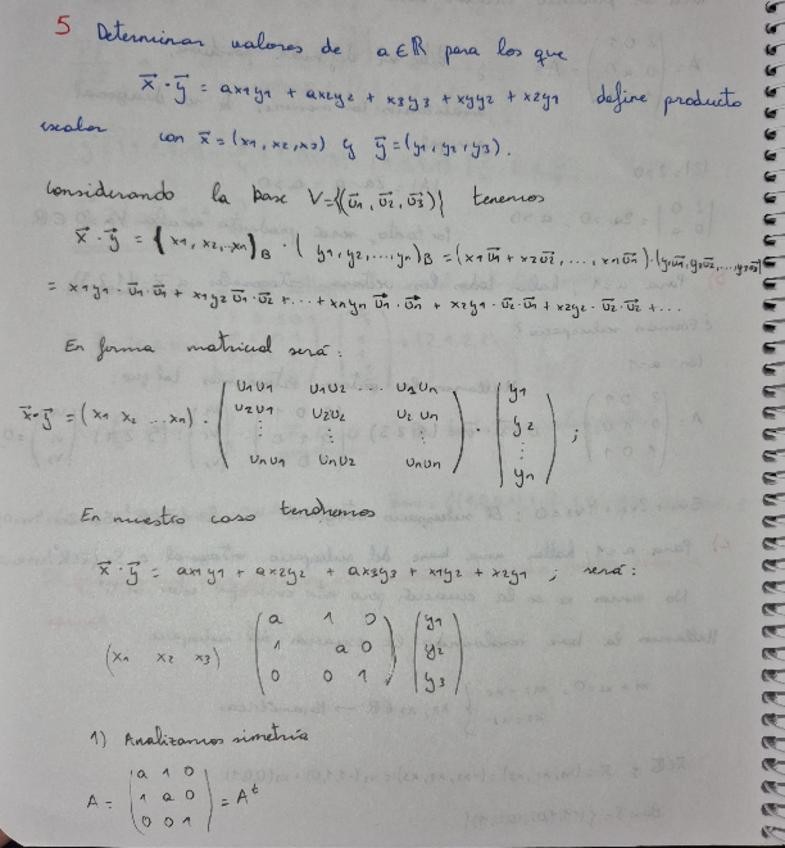 5 Determinar valores de a∈ℝ para los que
x⃗·y⃗ = ax1y1 + ax2y2 + x3y3 + xyy2 + x2y1 define producto
escalar con x⃗ = (x1, x2, x3) y y⃗ = (y1, y2, y3).
Considerando la base V={(u⃗1, u⃗2, u⃗3)} tenemos
x⃗·y⃗ = (x1, x2,...xn)B · (y1, y2,..., yn)B = (x1u⃗1 + x2u⃗2, ..., xnu⃗n)·(y1u⃗1, y2u⃗2, ..., y3u⃗3)
= x1y1·u⃗1·u⃗1 + x1y2 u⃗1·u⃗2 + ... + xnyn u⃗n·u⃗n + x2y1·u⃗2·u⃗1 + x2y2·u⃗2·u⃗2 + ...
En forma matricial será:
x⃗·y⃗ = (x1 x2 ... xn) · ( u1u1 u1u2 ... u1un ) · ( y1 )
u2u1 u2u2 u2un y2
⋮ ⋮ ⋮ ⋮
unu1 unu2 unun yn ;
En nuestro caso tendremos
x⃗·y⃗ = ax1y1 + ax2y2 + ax3y3 + x1y2 + x2y1 ; será:
a 1 0 y1
(x1 x2 x3) 1 a 0 y2
0 0 1 y3
1) Analizamos simetría
a 1 0
A = 1 a 0 = Aᵗ
0 0 1